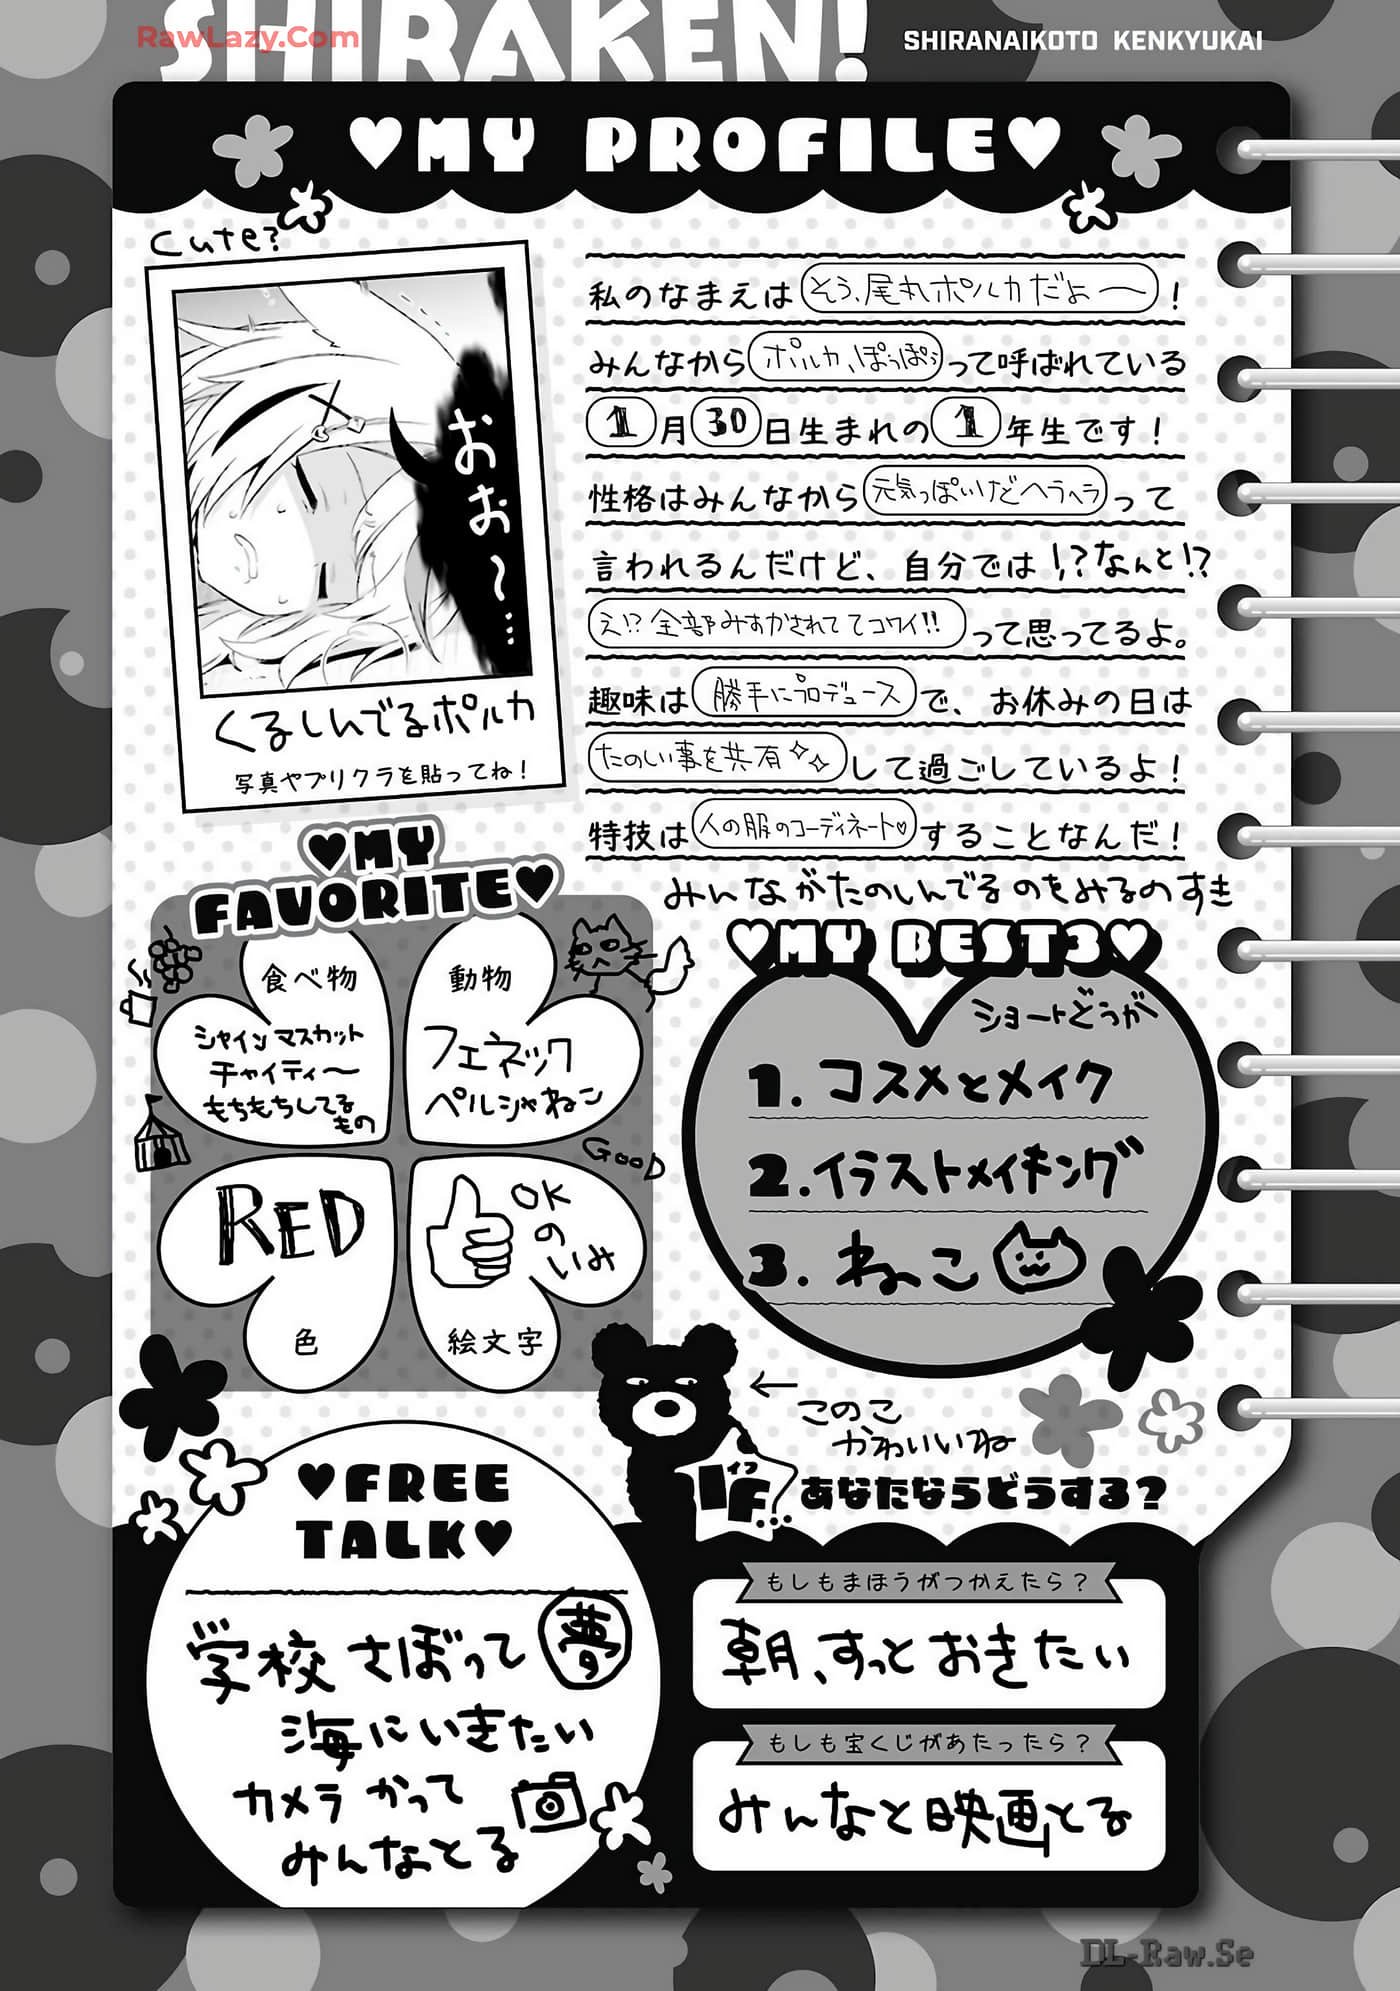 SHIRAKEN!
RawLazy.Com
SHIRANAIKOTO KENKYUKAI
♥MY PROFILE♥
Cute?
おぉ〜…
くるしんでるポルカ
写真やプリクラを貼ってね！
私のなまえは そう、尾丸ポルカだよー ！
みんなから ポルカ、ぽぅぽぅ って呼ばれている
1 月 30 日生まれの 1 年生です！
性格はみんなから 元気っぽいけどヘラヘラ って
言われるんだけど、自分では !?なんと!?
え!?全部みすかされててコワイ!! って思ってるよ。
趣味は 勝手にプロデュース で、お休みの日は
たのしい事を共有 して過ごしているよ！
特技は 人の服のコーディネート♡ することなんだ！
みんながたのしんでるのをみるのすき
♥MY
FAVORITE♥
食べ物
シャインマスカット
チャイティ〜
もちもちしてる
もの
動物
フェネック
ペルシャねこ
RED
色
GOOD
OK
の
いみ
絵文字
♥MY BEST3♥
ショートどうが
1. コスメとメイク
2. イラストメイキング
3. ねこ
←このこ
かわいいね
♥FREE
TALK♥
学校さぼって 夢
海にいきたい
カメラかって
みんなとる
イフ
IF... あなたならどうする？
もしもまほうがつかえたら？
朝、すっとおきたい
もしも宝くじがあたったら？
みんなと映画とる
DL-Raw.Se